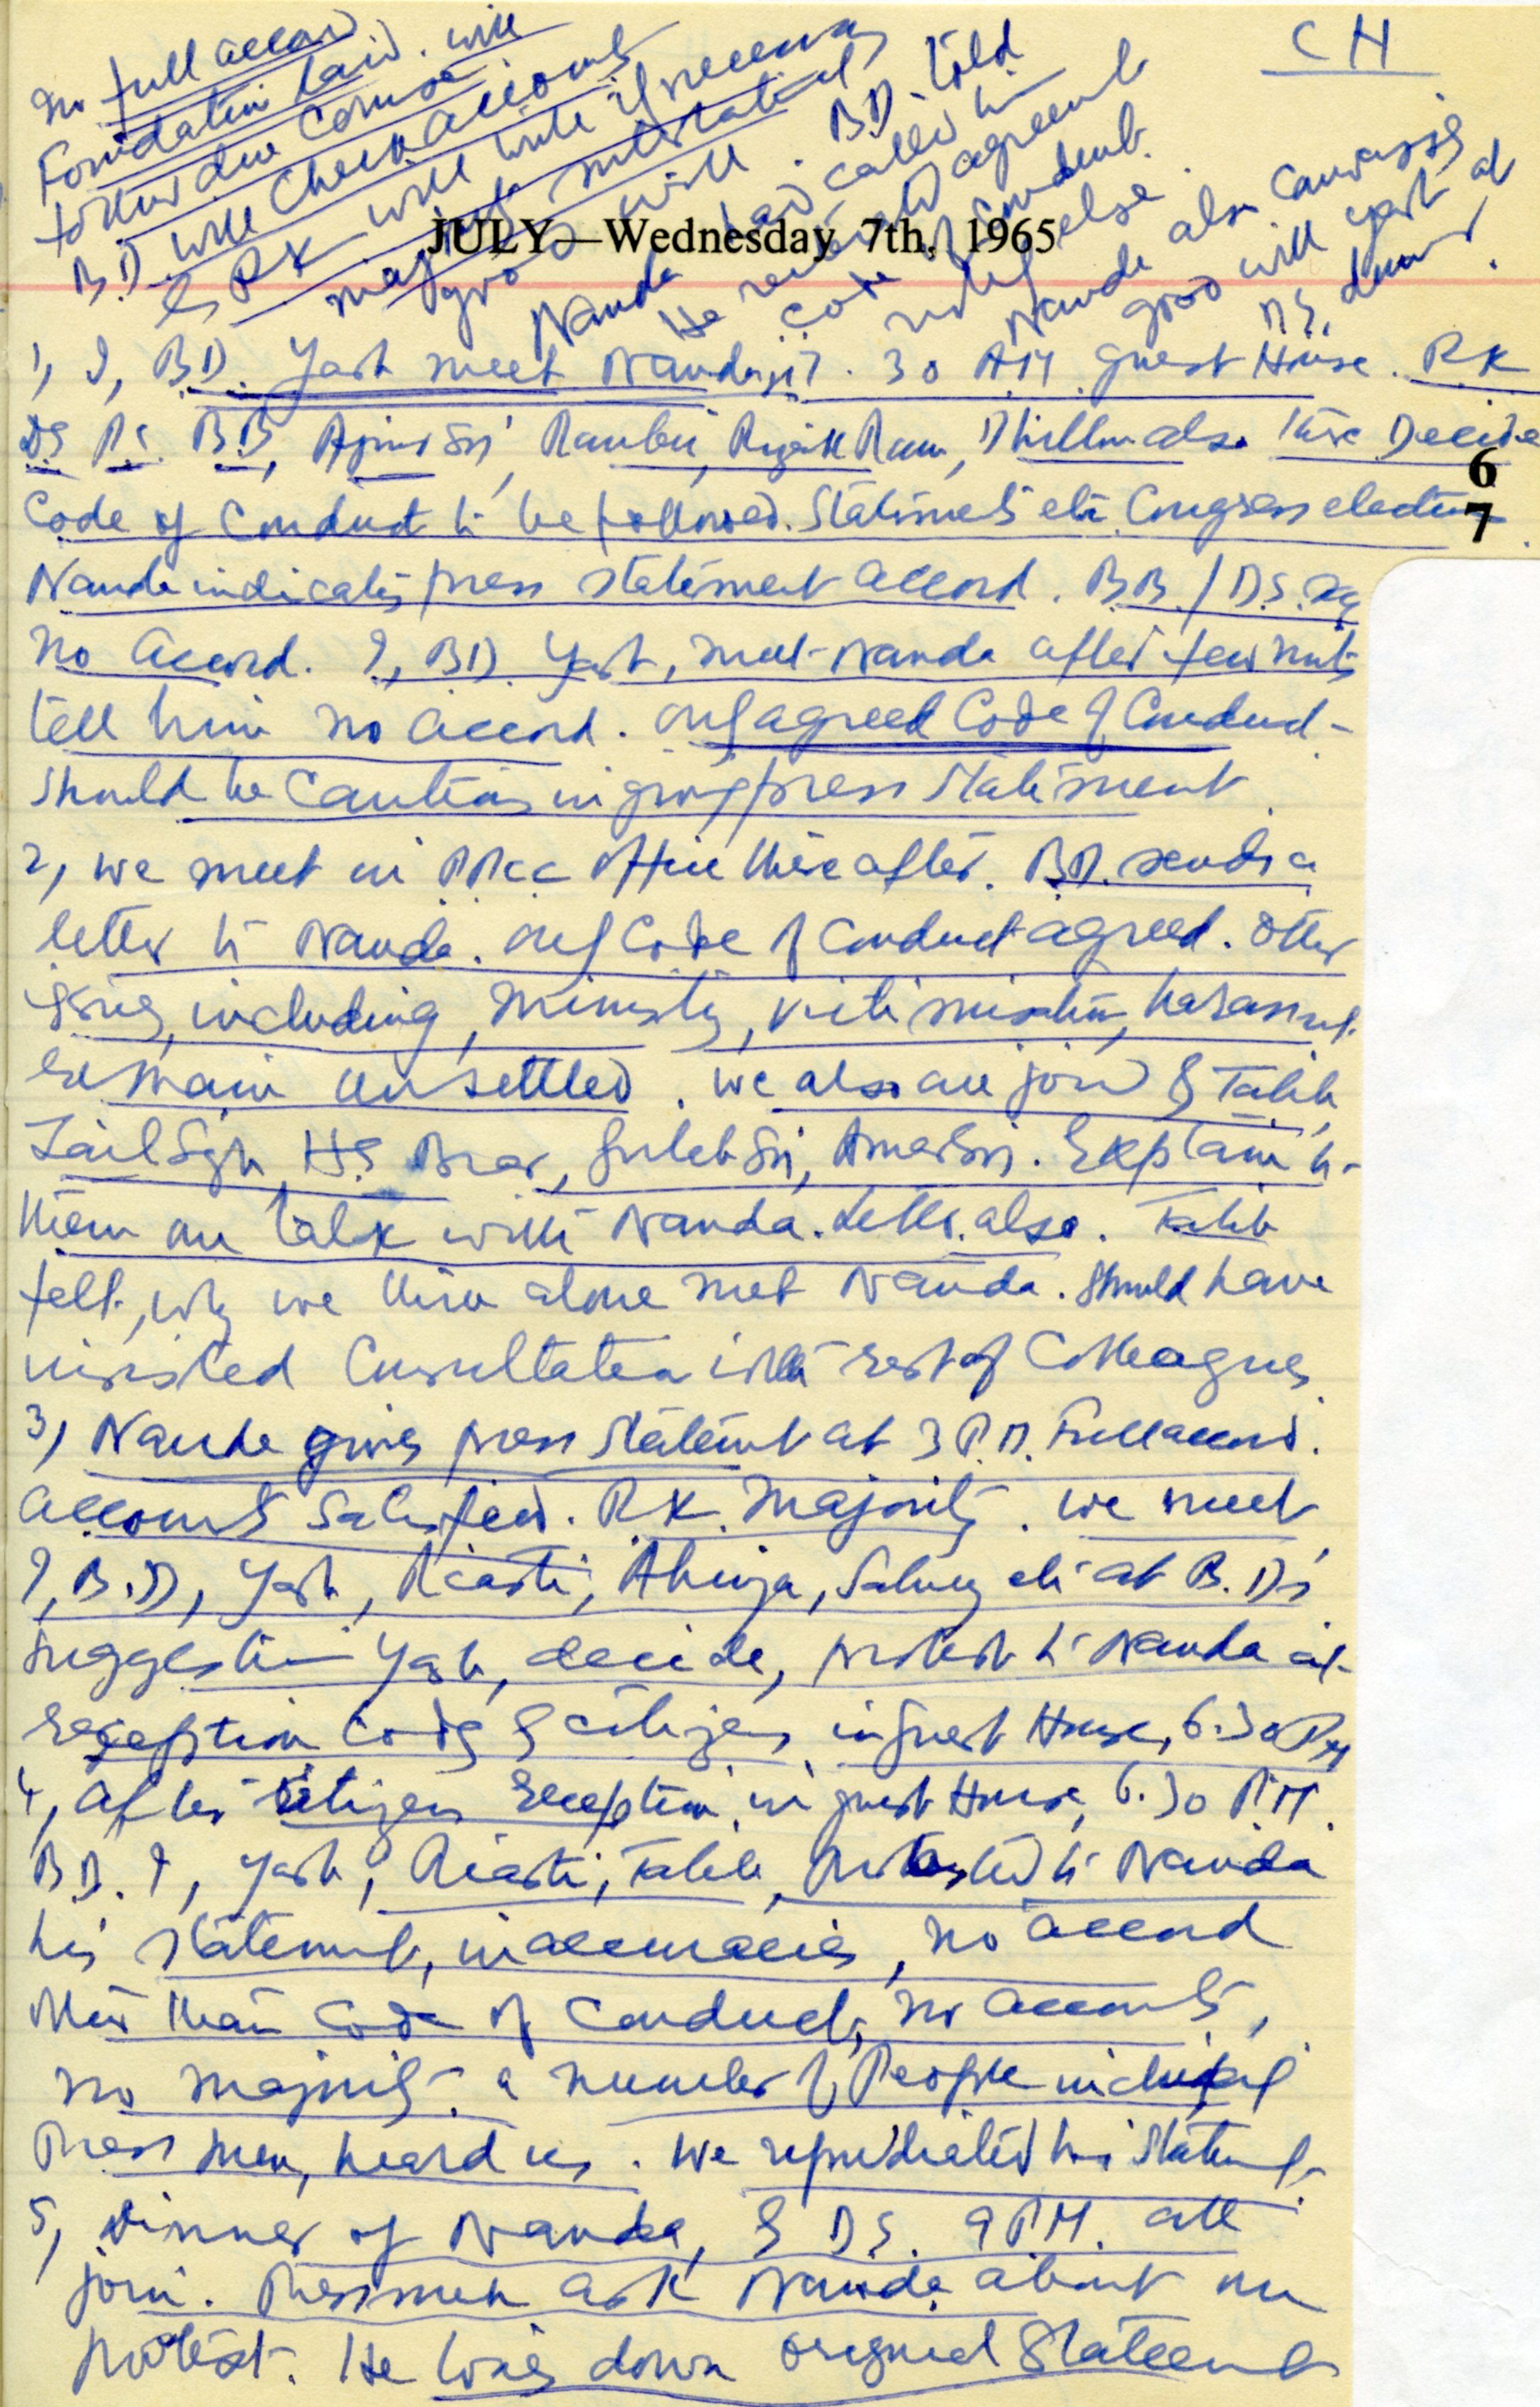 CH
No full accord
Foundation laid. will
follow due course.
B.D. will check accounts
& RK will write if necessary
majority
good will. B.D. told
Nanda
He agreement
Code of Conduct.
else.
Nanda also canvassing
good will Yash at
D.S. dinner.
JULY—Wednesday 7th, 1965
1, I, B.D. Yash meet Nandaji 7.30 AM guest House. RK
DS P.C. B.B, Ranbir, Rizak Ram, Dhillon also there Decide
6
7
Code of Conduct to be followed. Statements etc Congress elections
Nanda indicates press statement accord. B.B./D.S. say
No accord. I, BD Yash, meet Nanda after few mts
tell him no accord. only agreed Code of Conduct
should be cautious in giving press statement.
2, We meet in PPCC office thereafter. B.D. sends a
letter to Nanda. only Code of Conduct agreed. Other
issues, including, Ministry, victimisation, harassmt
remain unsettled. We also are joined by Talib,
Zail Sgh, H.S Brar, Gulab Sn, Amar Sn. Explain to
them our talk with Nanda. letter also. Talib
felt, why we three alone met Nanda. Should have
insisted Consultation with rest of Colleagues.
3, Nanda gives press statement at 3 P.M. Full accord.
accounts satisfied. R.K. Majority. We meet
I, B.D, Yash, Riasti, Ahuja, Sahney etc at B.D's
suggestion Yash, decide, protest to Nanda at
reception citizens in guest House, 6.30 PM
4, After Citizens reception in guest House, 6.30 P.M.
B.D. I, Yash, Riasti, Talib, protested to Nanda
his statement, inaccuracies, no accord
other than Code of Conduct, no accounts,
no majority. a number of People including
Press men, heard us. We repudiated his Statement
5, Dinner of Nanda, by D.S. 9 P.M. all
join. Pressmen ask Nanda about our
protest. He tones down original Statement